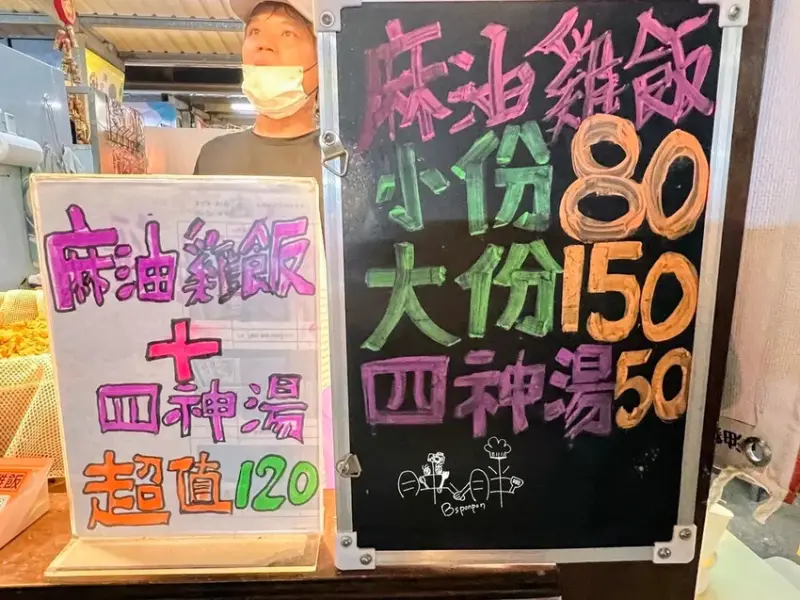 麻油雞飯
＋
四神湯
超值120
麻油雞飯
小份80
大份150
四神湯50
Bsponpon
雞飯